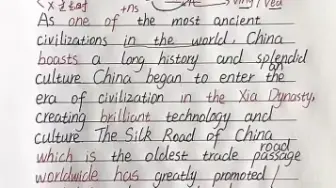 +ns
As one of the most ancient
civilizations in the world, China
boasts a long history and splendid
culture China began to enter the
an
era of civilization in the Xia Dynasty,
creating brilliant technology and
culture The Silk Road of China
road
which is the oldest trade passage
worldwide has greatly promoted